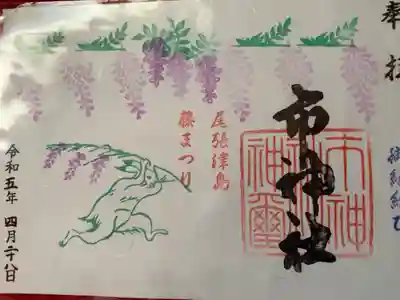 奉拝
市神社
尾張津島
藤まつり
令和五年 四月二十八日